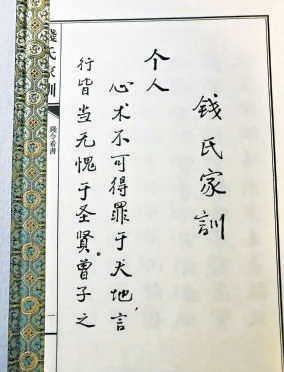 錢氏家訓
个人
心术不可得罪于天地，言
行皆当无愧于圣贤。曾子之
錢氏家訓
錢令希書
一